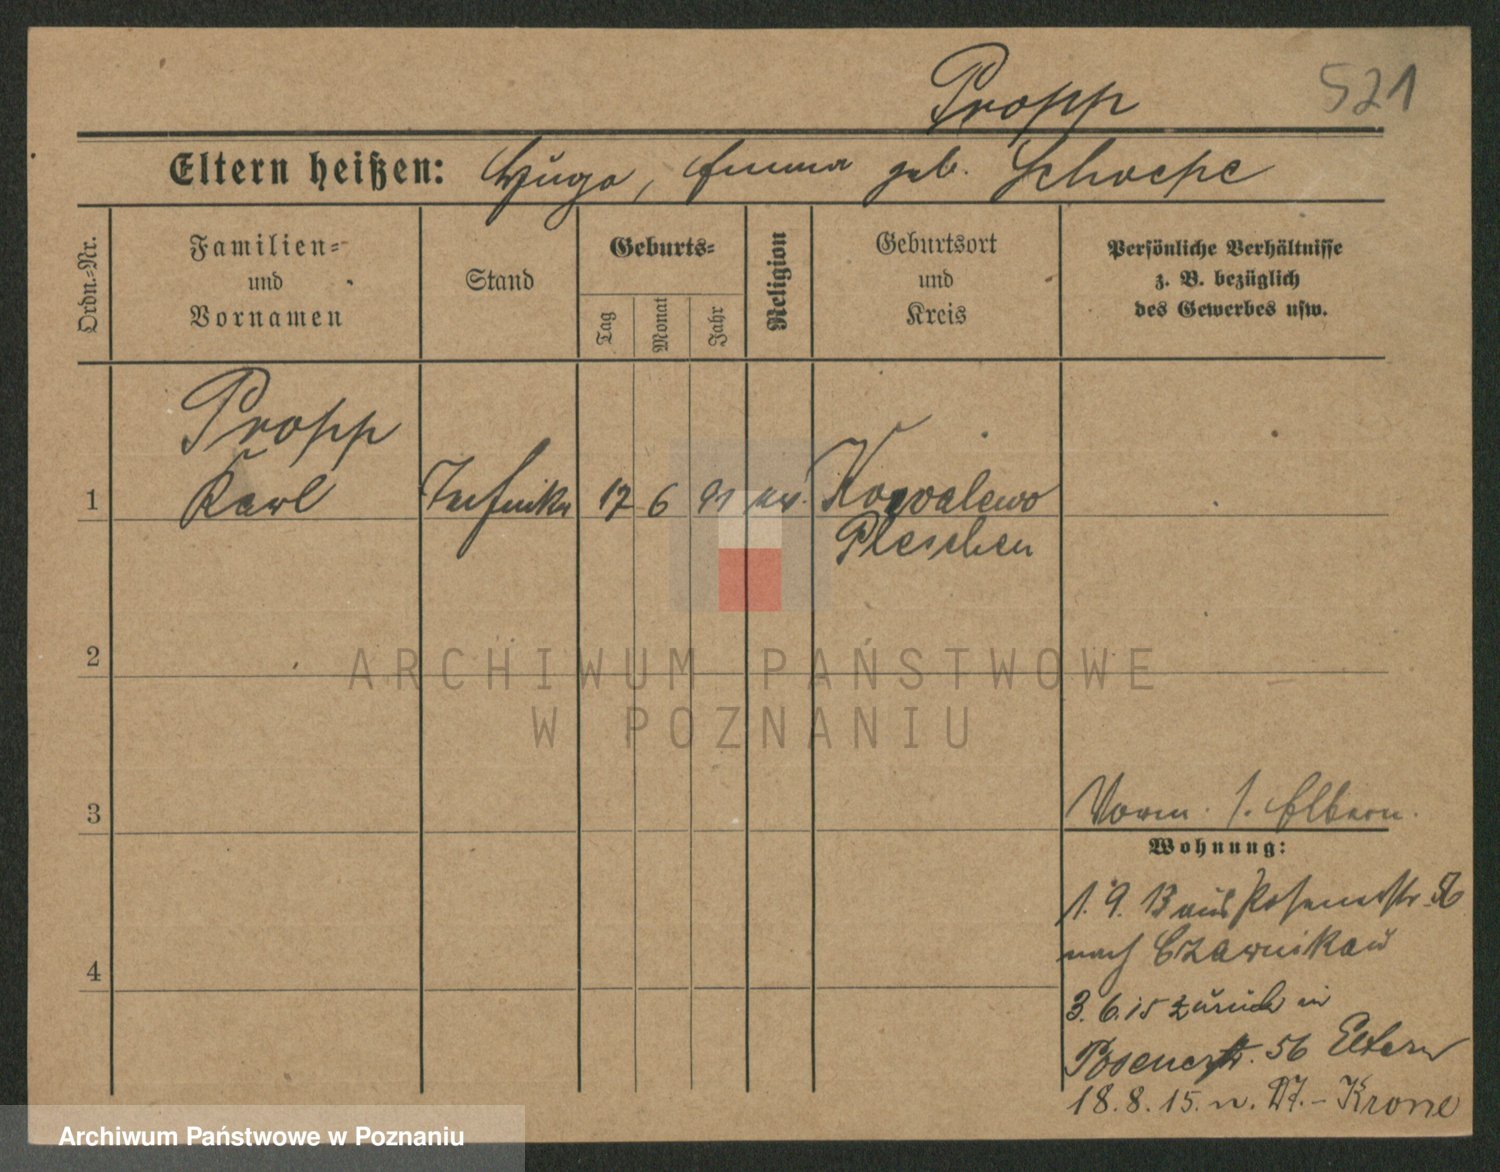 Propp
521
Eltern heißen: Hugo, Emma geb. Schoepe
Ordn.-Nr.
Familien-
und
Vornamen
Stand
Geburts-
Tag
Monat
Jahr
Religion
Geburtsort
und
Kreis
Persönliche Verhältnisse
z. B. bezüglich
des Gewerbes usw.
Propp
1 Karl Techniker 17 6 91 ev. Kowalewo
Pleschen
2
3
4
Vorm. s. Eltern.
Wohnung:
1. 9. 13 aus Posenerstr.
nach Czarnikau
3. 6. 15 zurück in
Posenerstr. 56 Eltern
18. 8. 15. n. Dt.-Krone
ARCHIWUM PAŃSTWOWE
W POZNANIU
Archiwum Państwowe w Poznaniu